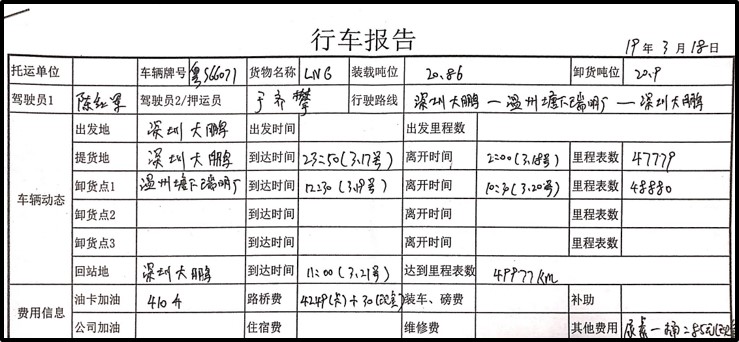 行车报告
19年 3月 18日
托运单位 车辆牌号 粤S66071 货物名称 LNG 装载吨位 20.86 卸货吨位 20.9
驾驶员1 陈红军 驾驶员2/押运员 于齐攀 行驶路线 深圳大鹏—温州塘下瑞明厂—深圳大鹏
车辆动态
出发地 深圳大鹏 出发时间 出发里程数
提货地 深圳大鹏 到达时间 23:50(3.17号) 离开时间 2:00(3.18号) 里程表数 47779
卸货点1 温州塘下瑞明厂 到达时间 12:30(3.19号) 离开时间 10:30(3.20号) 里程表数 48880
卸货点2 到达时间 离开时间 里程表数
卸货点3 到达时间 离开时间 里程表数
回站地 深圳大鹏 到达时间 11:00(3.21号) 达到里程表数 49977km
费用信息
油卡加油 410升 路桥费 4249(卡)+30(现金) 装车、磅费 补助
公司加油 住宿费 维修费 其他费用 尿素一桶=85元